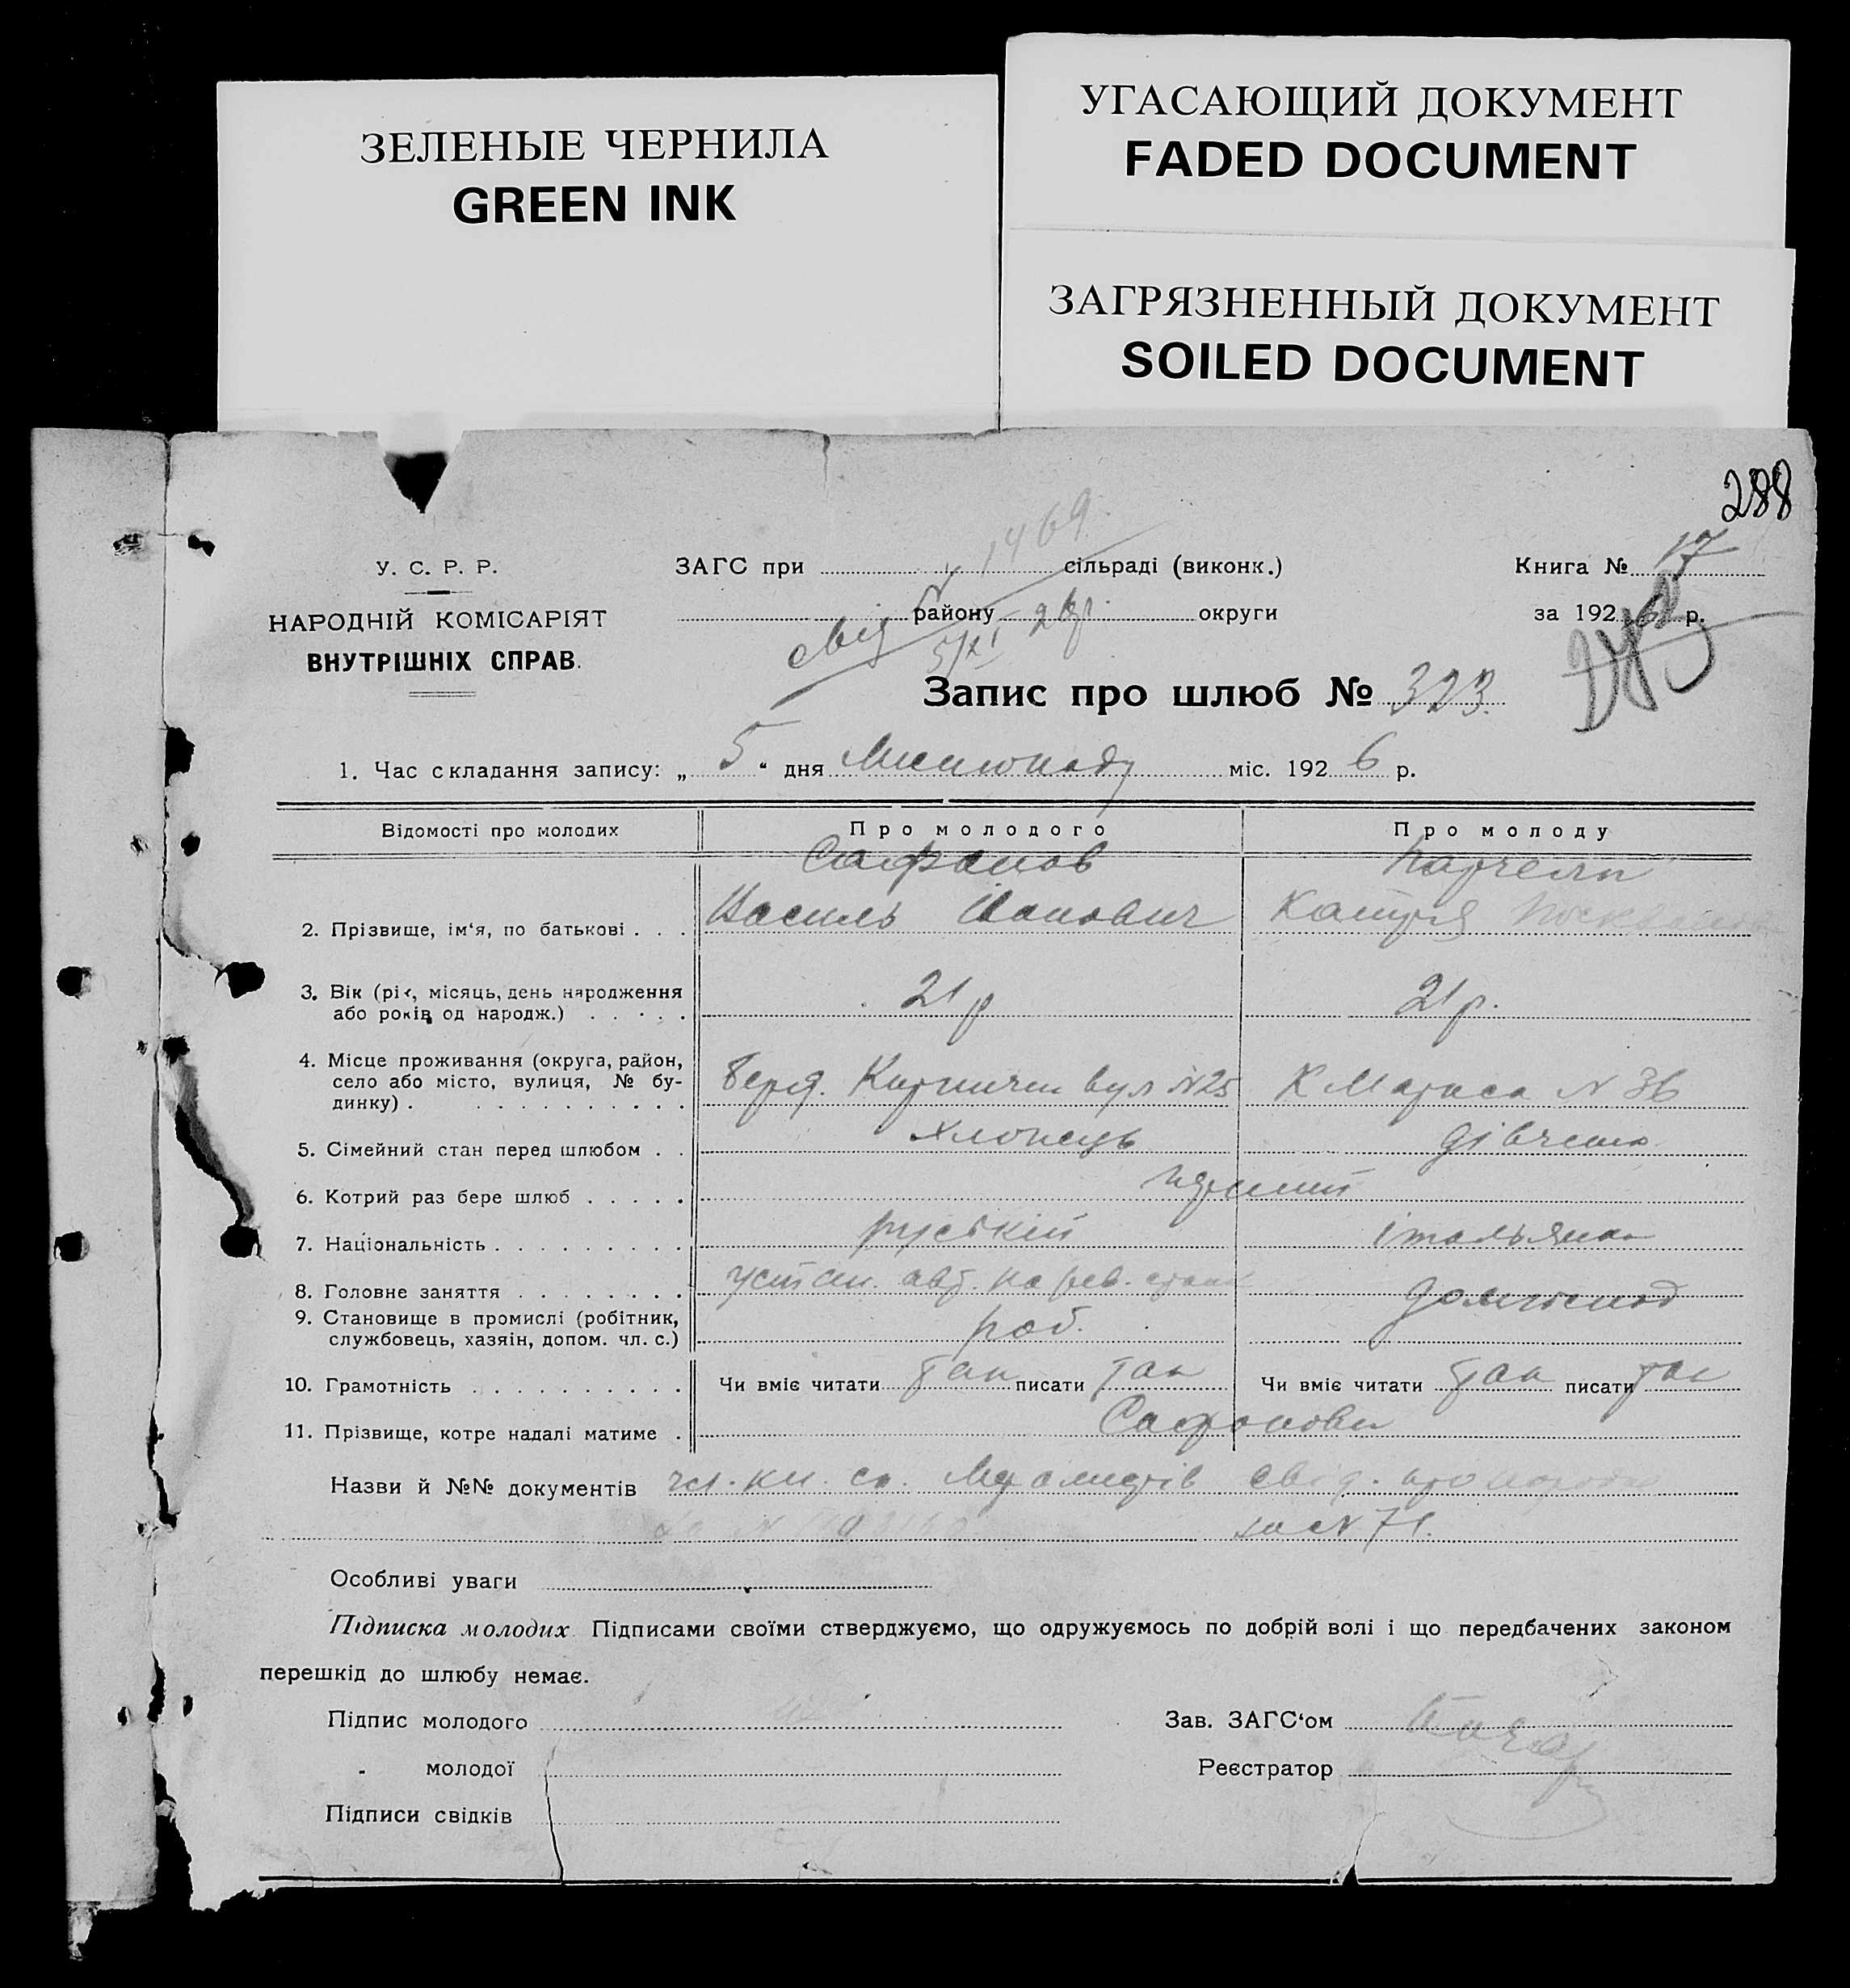 ЗЕЛЕНЫЕ ЧЕРНИЛА
GREEN INK
УГАСАЮЩИЙ ДОКУМЕНТ
FADED DOCUMENT
ЗАГРЯЗНЕННЫЙ ДОКУМЕНТ
SOILED DOCUMENT
288
У. С. Р. Р.
НАРОДНІЙ КОМІСАРІЯТ
ВНУТРІШНІХ СПРАВ.
ЗАГС при сільраді (виконк.)
району округи
свід 1469.
5/XI 26р.
Книга № 17
за 1926 р.
Запис про шлюб № 323.
1. Час складання запису: „ 5 " дня Листопаду міс. 1926 р.
Відомості про молодих Про молодого Про молоду
2. Прізвище, ім'я, по батькові . . . Сафонов Василь Іванович
3. Вік (рік, місяць, день народження або років од народж.) . . . . . 21 р 21 р.
4. Місце проживання (округа, район, село або місто, вулиця, № будинку) . . . . . . . . . . . Берд. вул №25 К Маркса № 36
5. Сімейний стан перед шлюбом . . хлопець дівчина
6. Котрий раз бере шлюб . . . . . перший
7. Національність . . . . . . . . . руський італьянка
8. Головне заняття . . . . . . . . домгоспод
9. Становище в промислі (робітник, службовець, хазяін, допом. чл. с.) роб.
10. Грамотність . . . . . . . . . . Чи вміє читати так писати так Чи вміє читати так писати так
11. Прізвище, котре надалі матиме . Сафонови
Назви й №№ документів чл. кн. сп. Металистів свід. про народж
за № 71.
Особливі уваги
Підписка молодих Підписами своїми стверджуємо, що одружуємось по добрій волі і що передбачених законом
перешкід до шлюбу немає.
Підпис молодого Зав. ЗАГС'ом
„ молодої Реєстратор
Підписи свідків